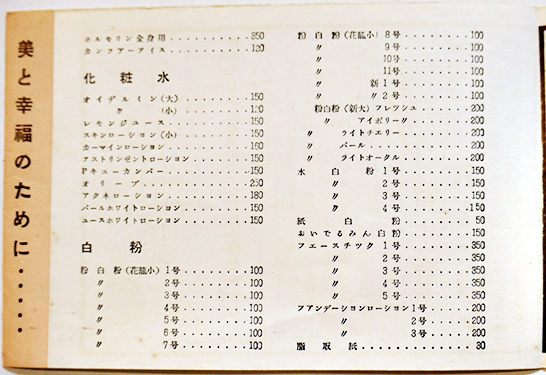 美と幸福のために・・・・・
ホルモリン全身用・・・・・・・・350
カンフアーアイス・・・・・・・・120
化粧水
オイデルミン(大)・・・・・・・・150
〃 (小)・・・・・・・・100
レモンジユース・・・・・・・・150
スキンローション(小)・・・・・・・・150
カーマインローション・・・・・・・・160
アストリンゼントローション・・・・・・・・150
Pキューカンバー・・・・・・・・150
オリーブ・・・・・・・・250
アクネローション・・・・・・・・180
パールホワイトローション・・・・・・・・150
ユースホワイトローション・・・・・・・・150
白粉
粉白粉(花籠小)1号・・・・・・・・100
〃 2号・・・・・・・・100
〃 3号・・・・・・・・100
〃 4号・・・・・・・・100
〃 5号・・・・・・・・100
〃 6号・・・・・・・・100
〃 7号・・・・・・・・100
粉白粉(花籠小)8号・・・・・・・・100
〃 9号・・・・・・・・100
〃 10号・・・・・・・・100
〃 11号・・・・・・・・100
〃 新1号・・・・・・・・100
〃 〃2号・・・・・・・・100
粉白粉(新大)フレツシユ・・・・・・・・200
〃 アイボリー〃・・・・・・・・200
〃 ライトチエリー・・・・・・・・200
〃 パール・・・・・・・・200
〃 ライトオークル・・・・・・・・200
水白粉1号・・・・・・・・150
〃 2号・・・・・・・・150
〃 3号・・・・・・・・150
〃 4号・・・・・・・・150
紙白粉・・・・・・・・50
おいでるみん白粉・・・・・・・・150
フエースチツク1号・・・・・・・・350
〃 2号・・・・・・・・350
〃 3号・・・・・・・・350
〃 4号・・・・・・・・350
〃 5号・・・・・・・・350
フアンデーションローション1号・・・・・・・・200
〃 2号・・・・・・・・200
〃 3号・・・・・・・・200
脂取紙・・・・・・・・30